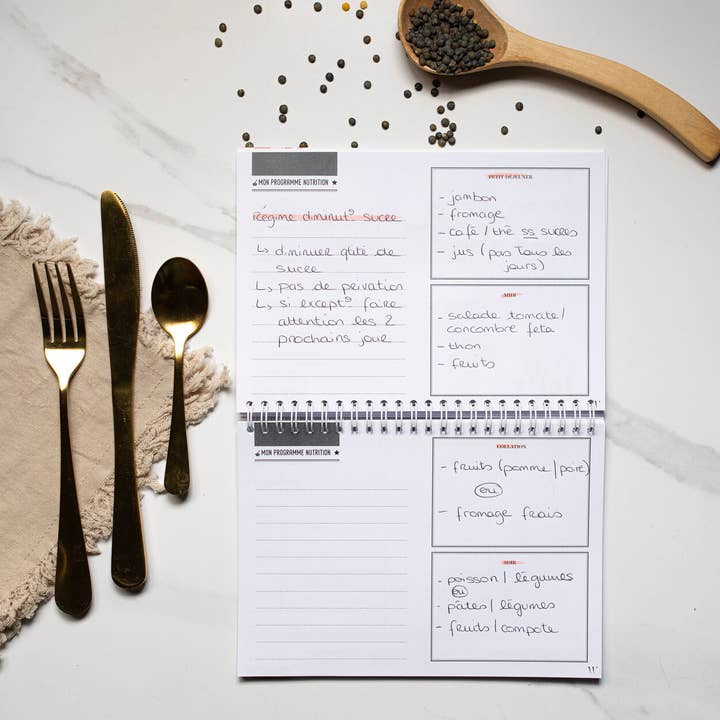 MON PROGRAMME NUTRITION
Régime diminutº sucre
↳ diminuer qtité de
sucre
↳ pas de privation
↳ si exceptº faire
attention les 2
prochains jour
PETIT DEJEUNER
- jambon
- fromage
- café / thé ss sucres
- jus (pas Tous les
jours)
MIDI
- salade tomate/
concombre feta
- thon
- fruits
MON PROGRAMME NUTRITION
COLLATION
- fruits (pomme/poire)
ou
- fromage frais
SOIR
- poisson / légumes
ou
- pâtes / légumes
- fruits / compote